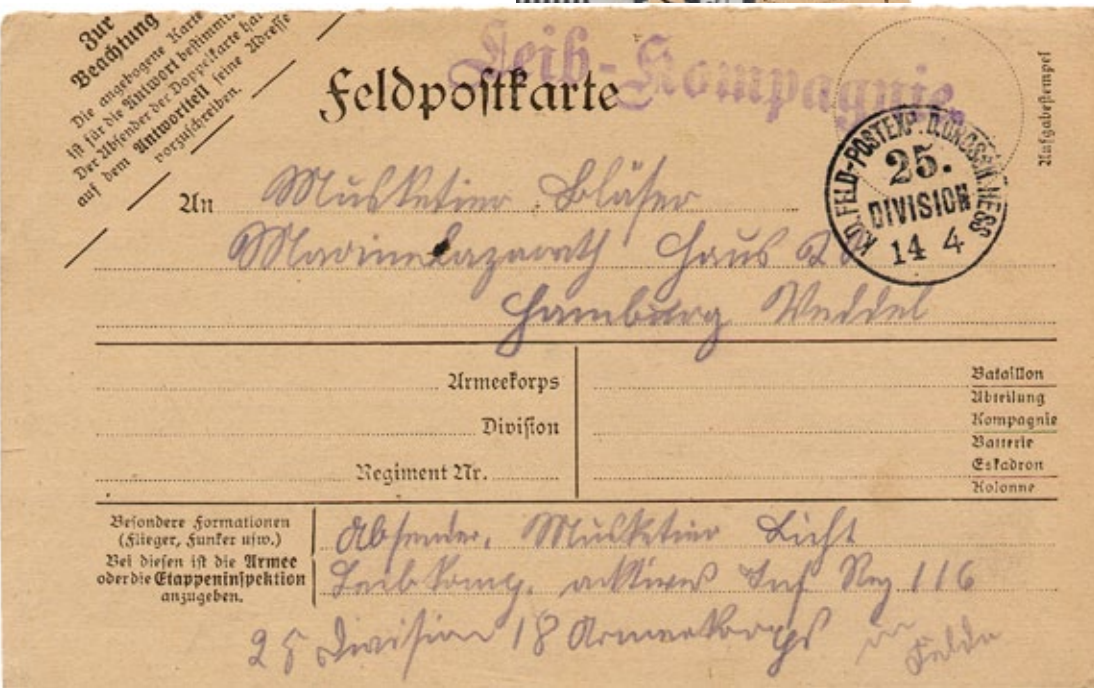 Zur
Beachtung
Die angebogene Karte
ist für die Antwort bestimmt.
Der Absender der Doppelkarte hat
auf dem Antwortteil seine Adresse
vorzuschreiben.
Leib-Kompagnie.
Feldpostkarte
Aufgabestempel
KD. FELD-POSTEXP. D. GROSSH. HESS
25.
DIVISION
14 4
An Musketier Bläser
Marinelazareth Haus
Hamburg Veddel
Armeekorps
Division
Regiment Nr.
Bataillon
Abteilung
Kompagnie
Batterie
Eskadron
Kolonne
Besondere Formationen
(Flieger, Funker usw.)
Bei diesen ist die Armee
oder die Etappeninspektion
anzugeben.
Absender. Musketier Licht
Leibkomp. aktives Inf Reg 116
25 Division 18 Armeekorps im
Felde